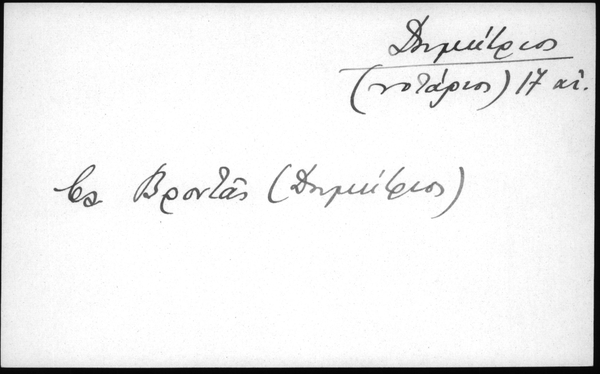 Δημήτριος
(νοτάριος) 17 αἰ.
Βροντᾶς (Δημήτριος)